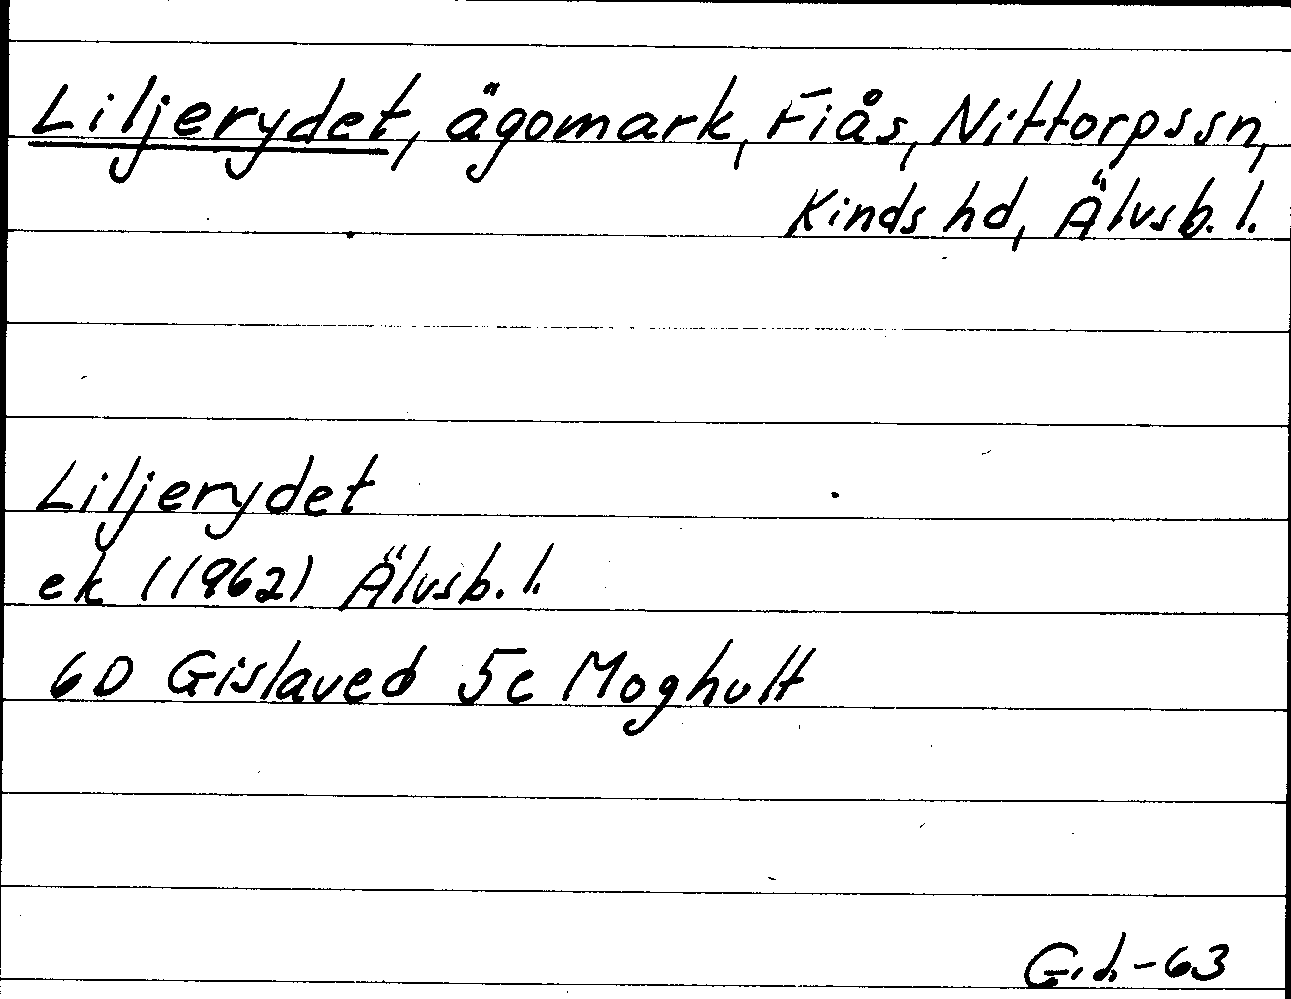 Liljerydet, ägomark, Fiås, Nittorps sn,
Kinds hd, Älvsb. l.
Liljerydet
ek (1962) Älvsb. l.
6D Gislaved 5c Moghult
G.d.-63